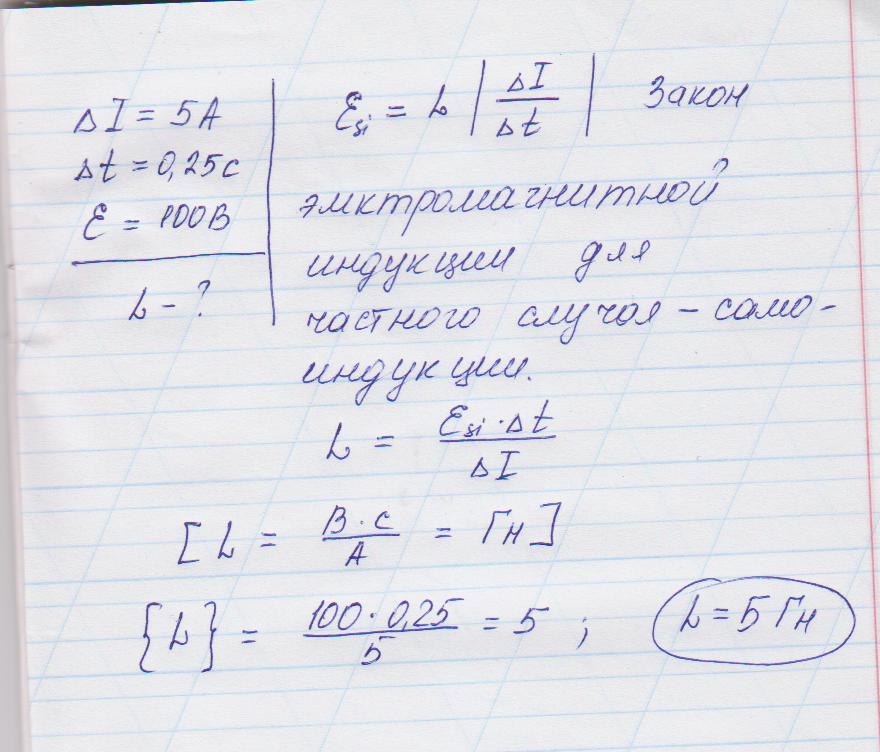 ΔI = 5А
Δt = 0,25с
Ɛ = 100В
L - ?
Ɛsi = L | ΔI/Δt | Закон
эмктромагнитной
индукции для
частного случая - само-
индукции.
L = Ɛsi · Δt / ΔI
[L = В · с / А = Гн]
{L} = 100 · 0,25 / 5 = 5 ; L = 5 Гн